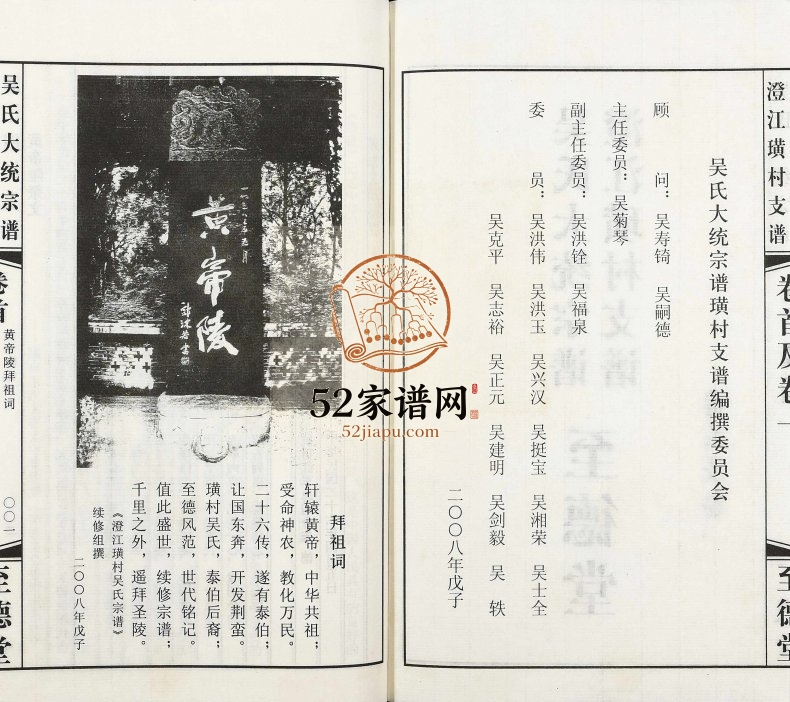 澄江璜村支谱
卷首及卷一
至德堂
吴氏大统宗谱璜村支谱编撰委员会
顾 问：吴寿锜 吴嗣德
主任委员：吴菊琴
副主任委员：吴洪铨 吴福泉
委 员：吴洪伟 吴洪玉 吴兴汉 吴挺宝 吴湘荣 吴士全
吴克平 吴志裕 吴正元 吴建明 吴剑毅 吴 轶
二〇〇八年戊子
黄帝陵
拜祖词
轩辕黄帝，中华共祖；
受命神农，教化万民。
二十六传，遂有泰伯；
让国东奔，开发荆蛮。
璜村吴氏，泰伯后裔；
至德风范，世代铭记。
值此盛世，续修宗谱；
千里之外，遥拜圣陵。
《澄江璜村吴氏宗谱》
续修组撰
二〇〇八年戊子
吴氏大统宗谱
卷首
黄帝陵拜祖词
〇〇一
至德堂
52家谱网
52jiapu.com